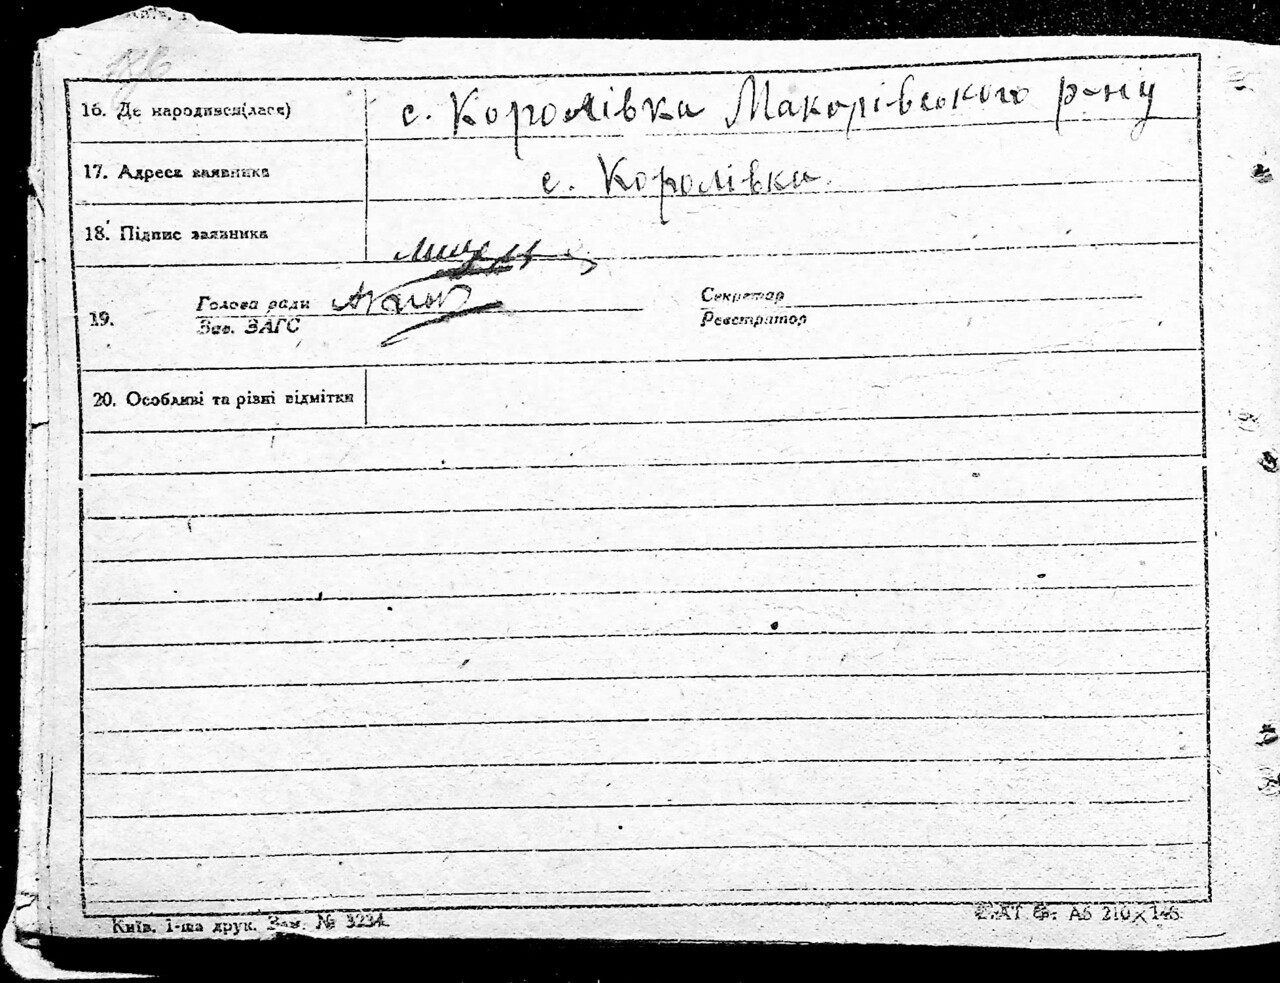 16. Де народився(лася) с. Королівка Макарівського р-ну
17. Адреса заявника с. Королівка
18. Підпис заявника
19. Голова ради Секретар
Зав. ЗАГС Реєстратор
20. Особливі та різні відмітки
Київ, 1-ша друк. Зам. № 3234 А5 210×148